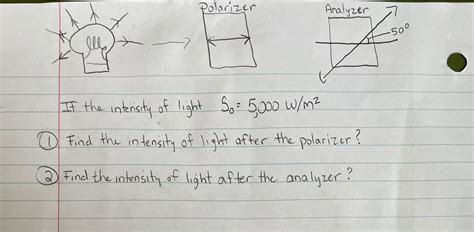 Polarizer
Analyzer
50°
If the intensity of light S₀ = 5,000 W/m²
① Find the intensity of light after the polarizer?
② Find the intensity of light after the analyzer?